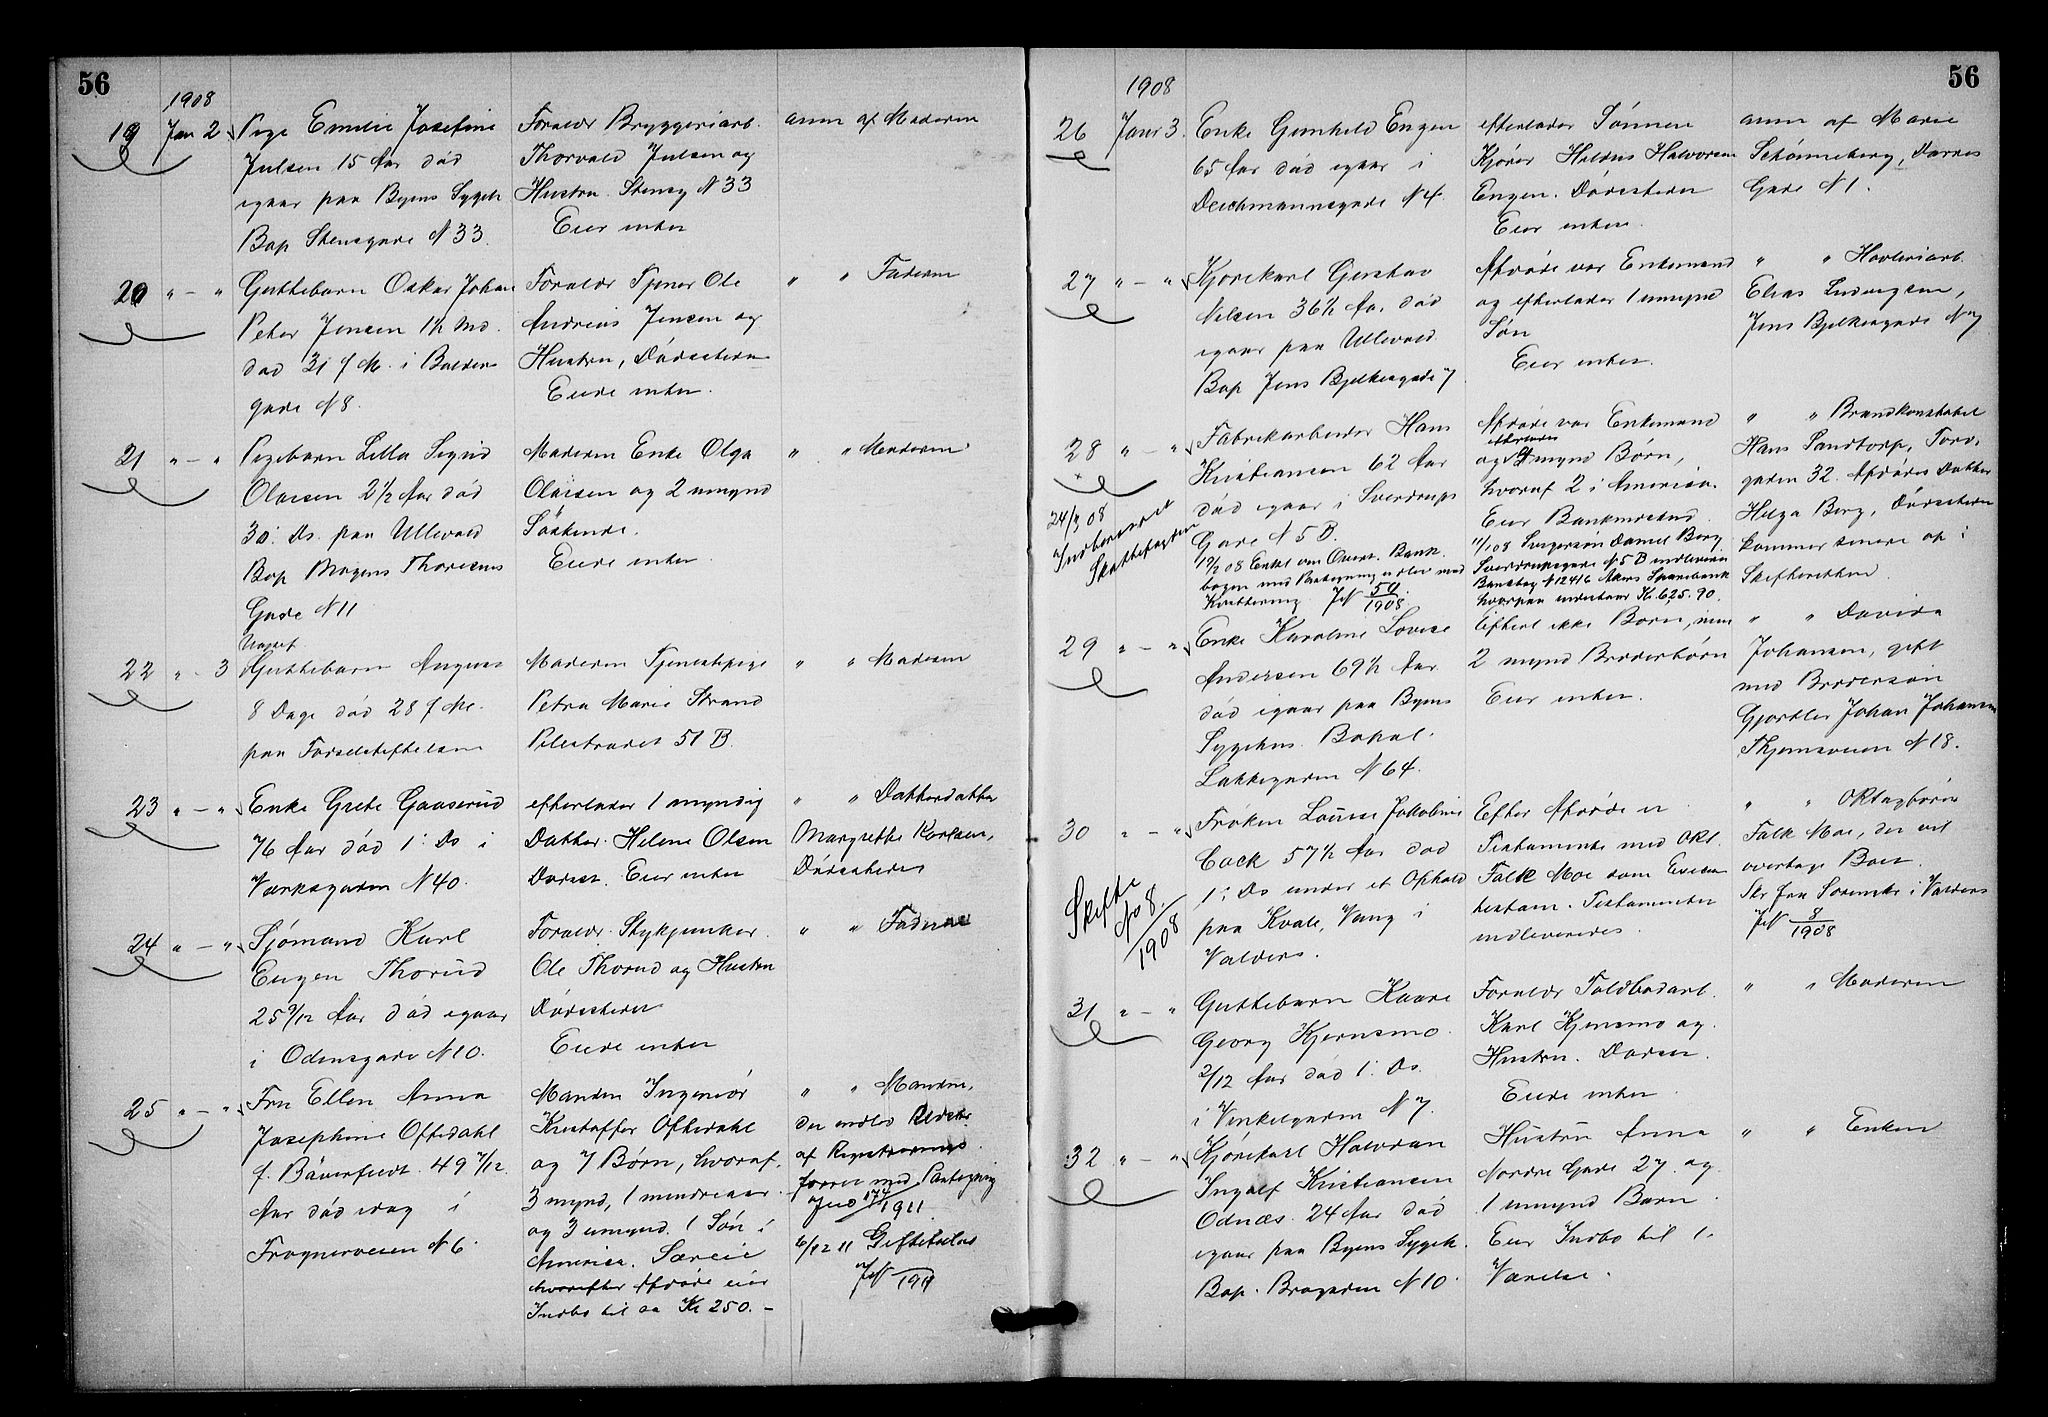 56
1908
19 Jan 2. Pige Emilie Josefine
Julsen 15 Aar død
igaar paa Byens Sygeh.
Bop Stensgade N 33.
Foræld: Bryggeriarb.
Thorvald Julsen og
Hustru. Stensg N 33
Eier inten
anm af Moderen
20 " - " Guttebarn Oskar Johan
Peter Jensen 1½ Md.
død 31 f. M. i Balders
gade N 8.
Foræld: Tjener Ole
Andreas Jensen og
Hustru, Dødsstedet
Eiede inten.
" " Faderen
21 " - " Pigebarn Lilla Sigrid
Olaisen 2½ Aar død
30: Ds. paa Ullevaal
Bop Mogens Thoresens
Gade N 11
Moderen Enke Olga
Olaisen og 2 umynd
Søskende.
Eiede inten
" " Moderen
22 " - 3 Udøpt
Guttebarn August
8 Dage død 28 f. M.
paa Fødselsstiftelsen
Moderen Tjenestepige
Petra Marie Strand
Pilestrædet 51 B.
" " Moderen
23 " - " Enke Grete Gaaserud
76 Aar død 1: Ds i
Værksgaden N 40.
efterlader 1 myndig
Datter. Helene Olsen
Dødsst. Eier inten
" " Datterdatter
Margrethe Karlsen,
Dødsstedet
24 " - " Sjømand Karl
Eugen Thorud
25 9/12 Aar død igaar
i Odinsgade N 10.
Foræld: Stykjunker
Ole Thorud og Hustru
Dødsstedet
Eiede inten
" " Faderen
25 " - " Fru Ellen Anna
Josephine Oftedahl
f. Bäverfeldt. 49 7/12
Aar død idag i
Frognerveien N 6.
Manden Ingeniør
Kristoffer Oftedahl
og 7 Børn, hvoraf
3 mynd, 1 mindreaar.
og 3 umynd. 1 Søn i
Amerika. Særeie
hvorefter Afdøde eier
Indbo til ca Kr 250.-
" " Manden,
der indlev
af
med Paategning
1911
6/12 11
1911
56
1908
26 Janr 3. Enke Gunhild Engen
65 Aar død igaar i
Deichmannsgade N 4.
efterlader Sønnen
Kjører Hildus Halvorsen
Engen. Dødsstedet
Eier inten.
anm af Marie
Schønneberg, Darres
Gade N 1.
27 " - " Kjørekarl Gustav
Nilsen 36½ Aar død
igaar paa Ullevaal
Bop Jens Bjelkesgade 7
Afdøde var Enkemand
og efterlader 1 umynd
Søn
Eier inten.
" " Høvleriarb.
Elias Ludvigsen,
Jens Bjelkesgade N 7
28 " - " Fabrikarbeider Hans
Kristiansen 62 Aar
død igaar i Sverdrups
Gade N 5 B.
24/3 08
Indberettet
Skattefogden
Bank
bogen med Paategning udlev mod
Kvittering JN 54/1908.
Afdøde var Enkemand
og efterlader mynd Børn,
hvoraf 2 i Amerika.
Eier Bankindskud
11/1 08 Svigersøn Daniel Berg
Sverdrupsgade N 5 B indleverer
Bankbog N 12416 Akers Sparebank
hvorpaa indestaar Kr. 625.90.
" " Brandkonstabel
Hans Sandtorp, Torv
gaden 32. Afdødes Datter
Helga Berg, Dødsstedet
kommer senere op i
Skifteretten.
29 " - " Enke Karoline Lovise
Andersen 69½ Aar
død igaar paa Byens
Sygehus. Bopæl.
Lakkegaden N 64.
Efterl ikke Børn, men
2 mynd Broderbørn
Eier inten.
" " Davida
Johansen, gift
med Brodersøn
Gjørtler Johan Johansen
N 18.
30 " - " Frøken Louise Jakobine
Cock 57½ Aar død
1: Ds under et Ophold
paa Kvale, Vang i
Valders.
Skifte
No 8.
1908
Efter Afdøde er
Testamente med ORI.
Falk Moe som Execu
testam. Testamentet
indleveredes.
" " ORtsagfører
Falk Moe, der vil
overtage Boet.
Skr fra Sorenskr i Valders
JN 8/1908
31 " - " Guttebarn Kaare
Georg Kjernsmo
2/12 Aar død 1: Ds.
i Vinkelgaden N 7.
Foræld: Toldbodarb.
Karl Kjernsmo og
Hustru. Dødsst.
Eiede inten.
" " Moderen
32 " - " Kjørekarl Halvdan
Ingolf Kristiansen
Odnæs. 24 Aar død
igaar paa Byens Sygeh.
Bop. Brogaden N 10.
Hustru Anna
Nordre Gade 27. og
1 umynd Barn
Eier Indbo til 1.
Værelse.
" " Enken